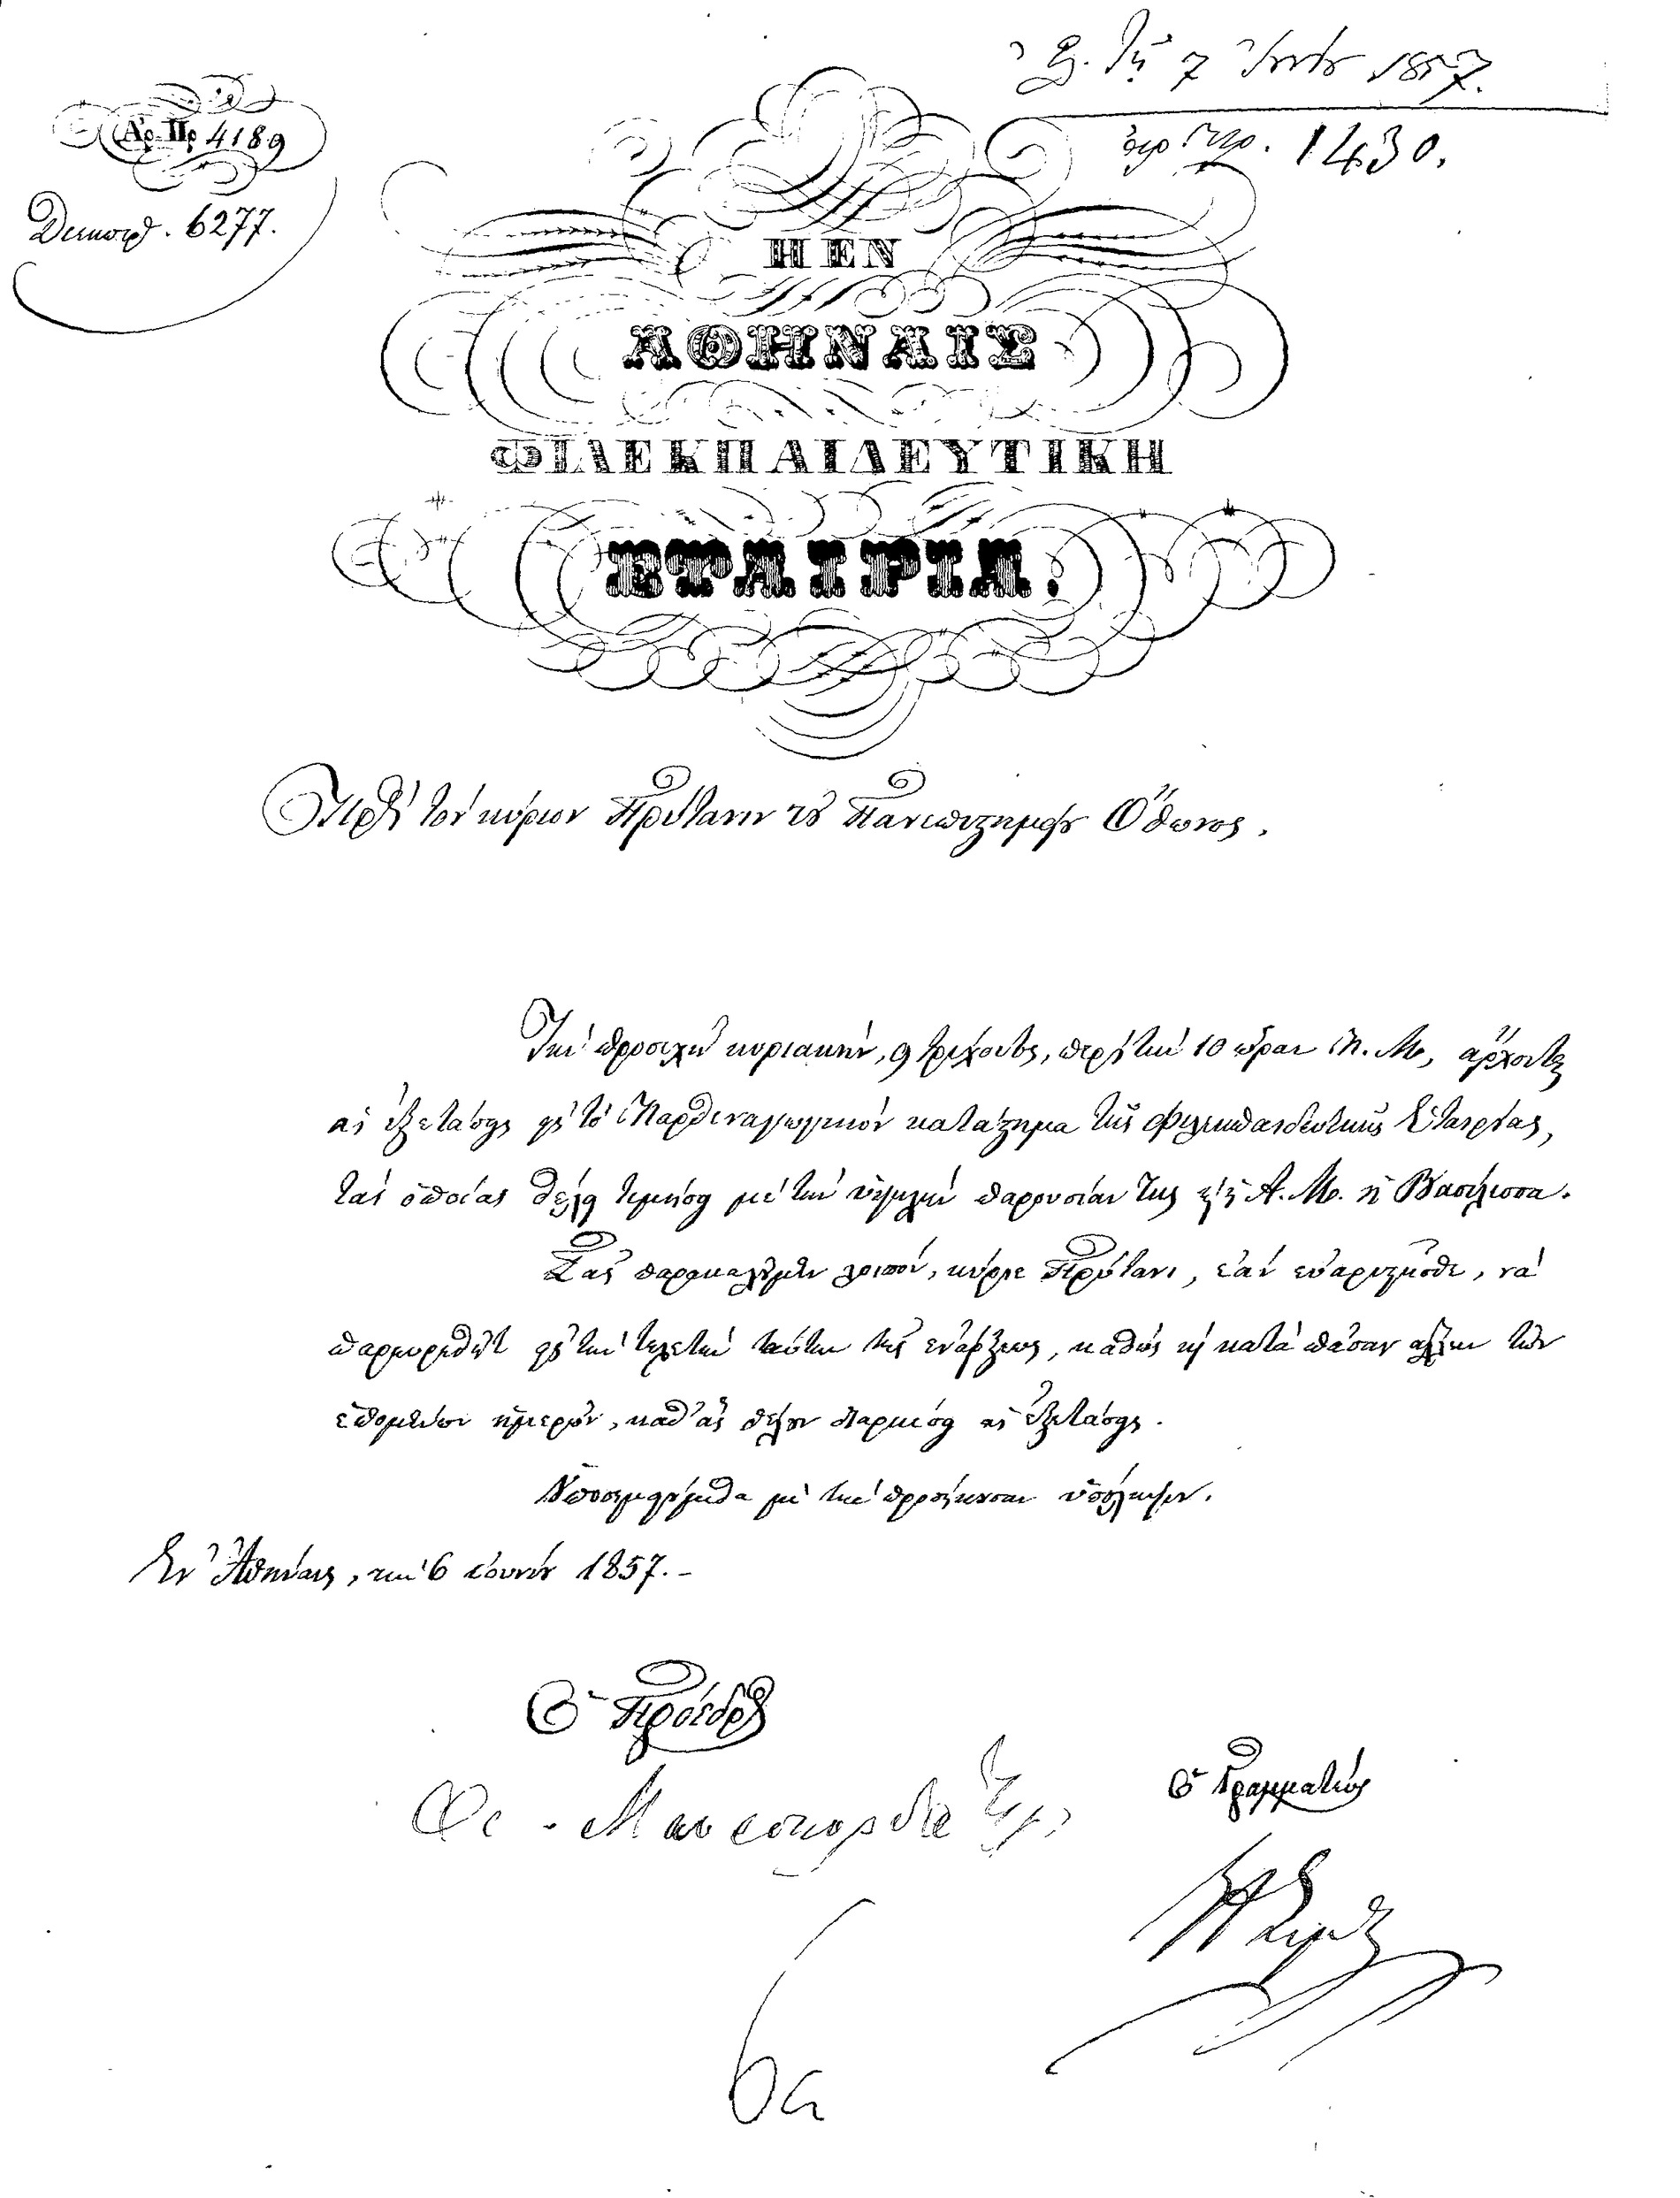 Ἀρ. Πρ. 4189
6277.
7 1857.
ἀρ. πρ. 1430.
Η ΕΝ
ΑΘΗΝΑΙΣ
ΦΙΛΕΚΠΑΙΔΕΥΤΙΚΗ
ΕΤΑΙΡΙΑ.
Πρὸς τὸν κύριον Πρύτανιν τοῦ Πανεπιστημίου Ὄθωνος.
Τὴν προσεχῆ κυριακὴν, 9 τρέχοντος, περὶ τὴν 10 ὥραν Π. Μ., ἄρχονται
αἱ ἐξετάσεις εἰς τὸ Παρθεναγωγικὸν κατάστημα τῆς Φιλεκπαιδευτικῆς Ἑταιρίας,
τὰς ὁποίας θέλει τιμήσει μὲ τὴν ὑψηλὴν παρουσίαν της καὶ ἡ Α. Μ. ἡ Βασίλισσα.
Σᾶς παρακαλοῦμεν λοιπὸν, κύριε Πρύτανι, ἐὰν εὐαρεστῆσθε, νὰ
παρευρεθῆτε εἰς τὴν τελετὴν ταύτην τῆς ἐνάρξεως, καθὼς καὶ κατὰ πᾶσαν ἄλλην τῶν
ἑπομένων ἡμερῶν, καθ' ἃς θέλουν διαρκέσει αἱ ἐξετάσεις.
Ὑποσημειούμεθα μὲ τὴν προσήκουσαν ὑπόληψιν.
Ἐν Ἀθήναις, τὴν 6 ἰουνίου 1857.-
Ὁ Πρόεδρος
Ὁ Γραμματεὺς